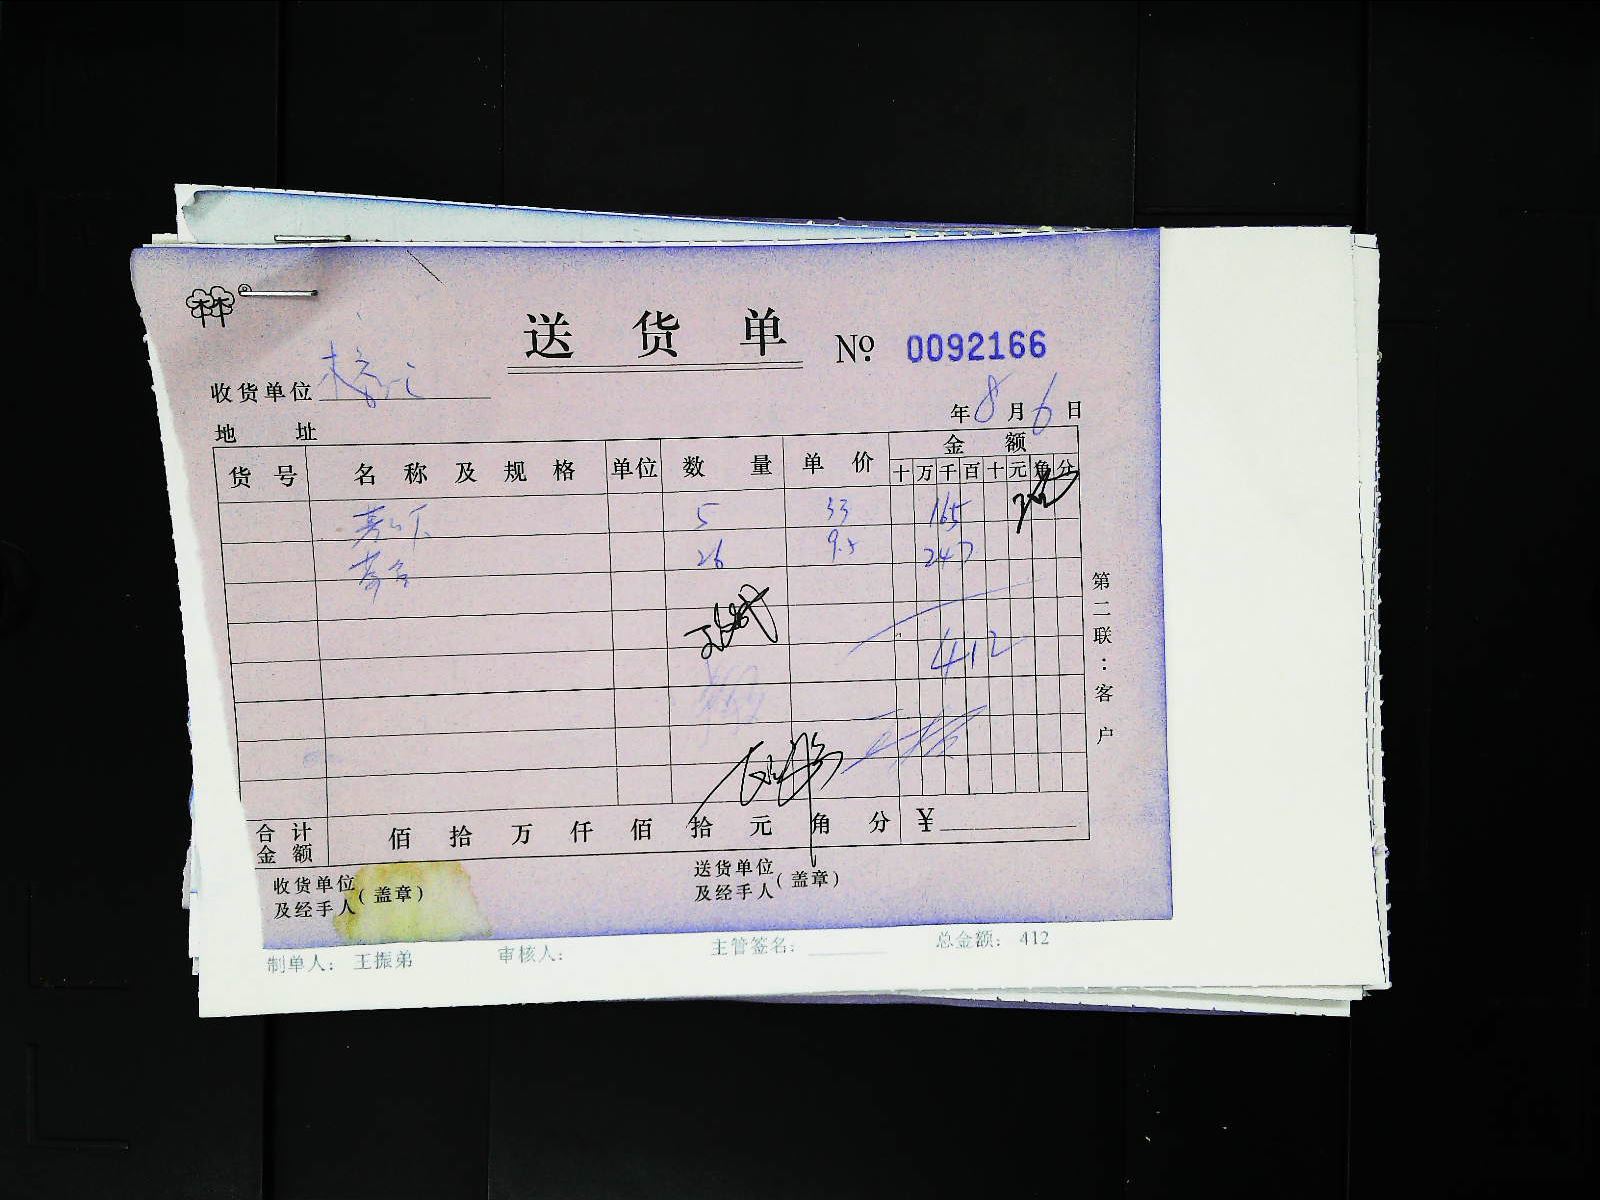 林®
送货单 Nº 0092166
收货单位
年8月6日
地址
货号 名称及规格 单位 数量 单价 金额
十万千百十元角分
5 33 165
26 9.5 247
412
第二联：客户
合计金额 佰拾万仟佰拾元角分 ¥
收货单位及经手人(盖章) 送货单位及经手人(盖章)
制单人： 王振弟 审核人： 主管签名： 总金额： 412